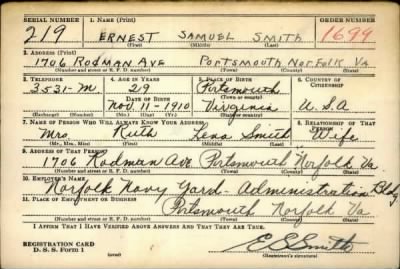 SERIAL NUMBER 1. NAME (Print) ORDER NUMBER
219 ERNEST SAMUEL SMITH 1699
(First) (Middle) (Last)
2. ADDRESS (Print)
1706 RODMAN AVE PORTSMOUTH NORFOLK VA
(Number and street or R. F. D. number) (Town) (County) (State)
3. TELEPHONE 4. AGE IN YEARS 5. PLACE OF BIRTH 6. COUNTRY OF CITIZENSHIP
3531-M 29 Portsmouth
DATE OF BIRTH (Town or county)
Nov. 11-1910 Virginia U.S.A
(Exchange) (Number) (Mo.) (Day) (Yr.) (State or country)
7. NAME OF PERSON WHO WILL ALWAYS KNOW YOUR ADDRESS 8. RELATIONSHIP OF THAT PERSON
Mrs. Ruth Lena Smith Wife
(Mr., Mrs., Miss) (First) (Middle) (Last)
9. ADDRESS OF THAT PERSON
1706 Rodman Ave Portsmouth Norfolk Va
(Number and street or R. F. D. number) (Town) (County) (State)
10. EMPLOYER'S NAME
Norfolk Navy Yard - Administration Bldg
11. PLACE OF EMPLOYMENT OR BUSINESS
Portsmouth Norfolk Va
(Number and street or R. F. D. number) (Town) (County) (State)
I AFFIRM THAT I HAVE VERIFIED ABOVE ANSWERS AND THAT THEY ARE TRUE.
REGISTRATION CARD
D. S. S. Form 1 E S Smith